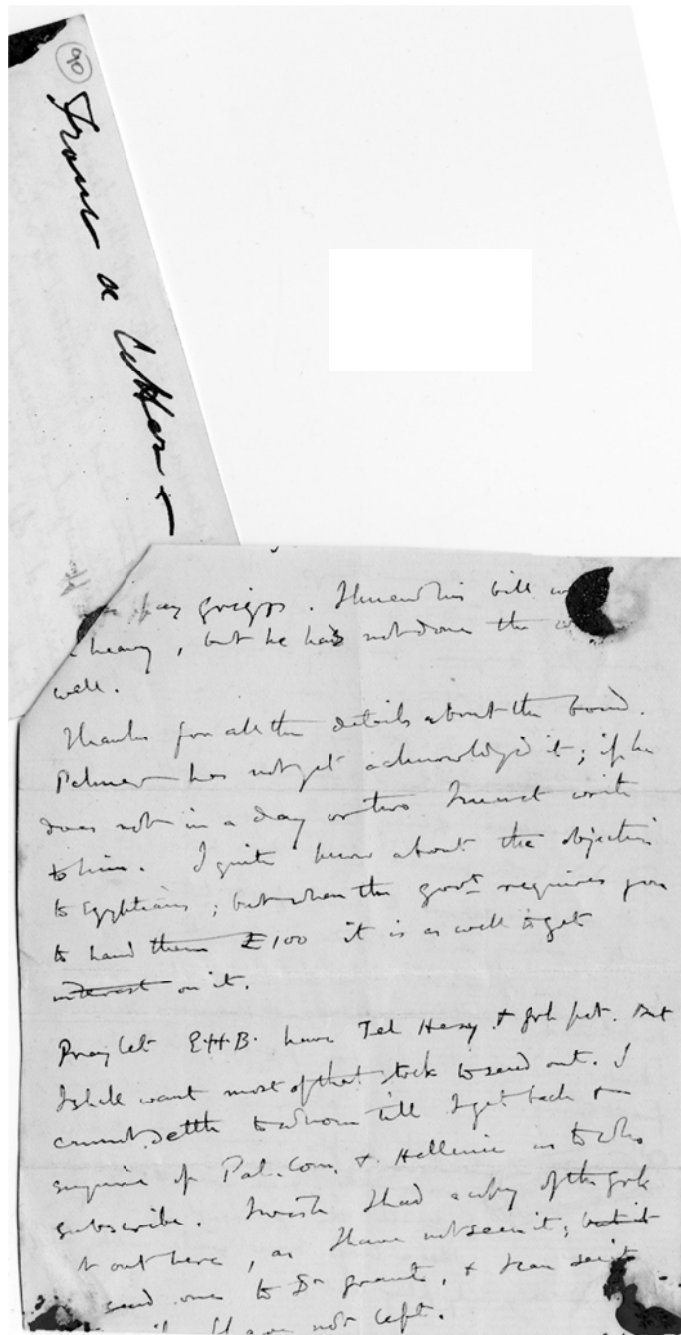 90
pay Griggs. I knew his bill
heavy, but he has not done the
well.
Thanks for all the details about the bond.
Palmer has not yet acknowledged it; if he
does not in a day or two I must write
to him. I quite know about the objection
to Egyptians; but when the govt requires you
to hand them £100 it is as well to get
interest on it.
Pray let E.H.B. have Tel Hesy & Grk pot. But
I shall want most of that stock to send out. I
cannot settle to whom till I get back &
enquire of Pal. Com. & Hellenic as to who
subscribe. I wish I had a copy of the Grk
out here, as I have not seen it; but
send one to Dr Grant, & I can see it
if I have not left.